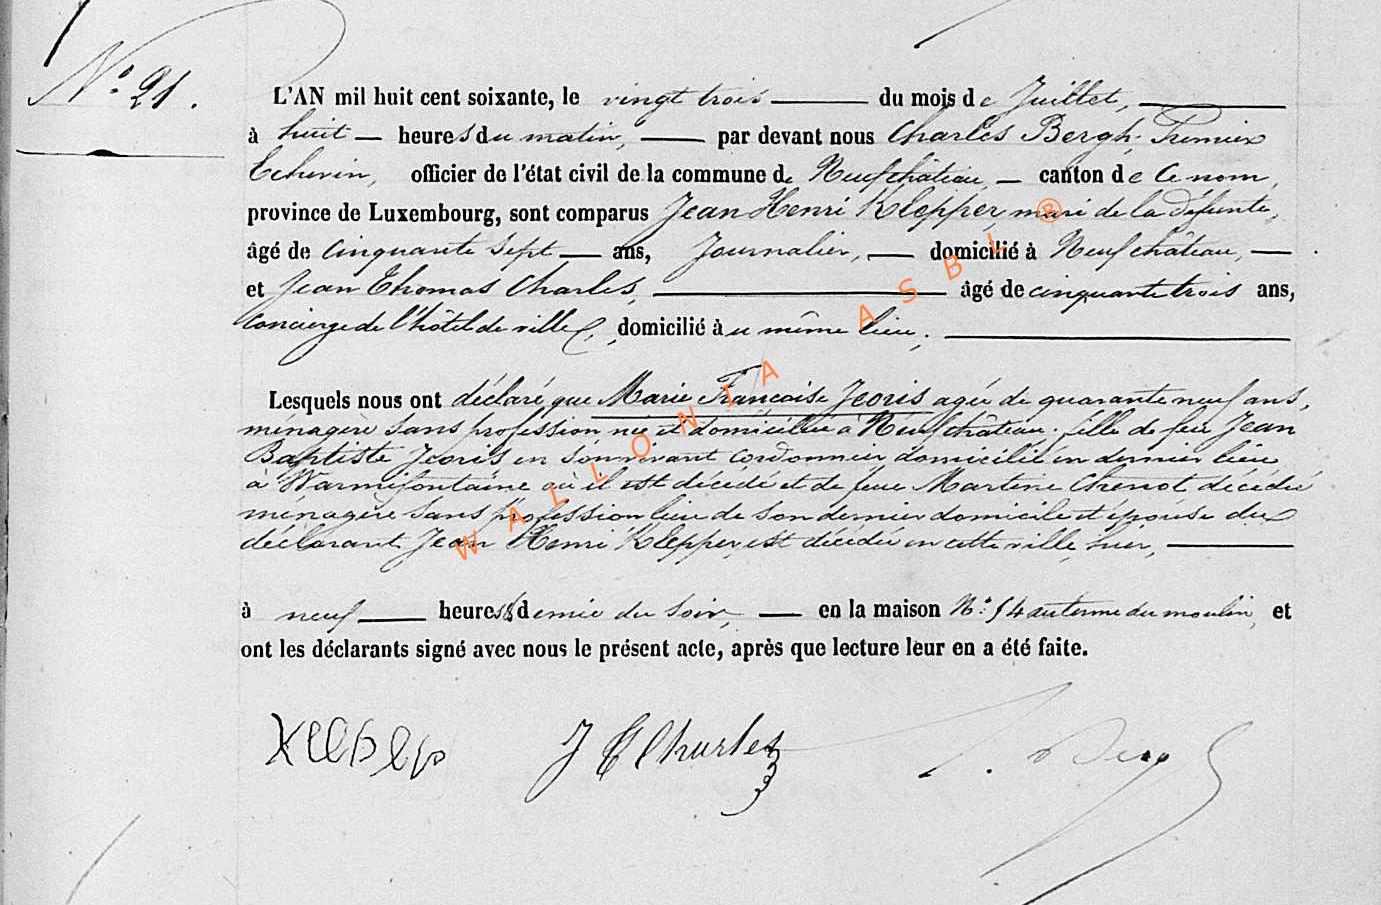 N° 21.
L'AN mil huit cent soixante, le vingt trois du mois de Juillet,
à huit heures du matin, par devant nous Charles Bergh, Premier
Echevin, officier de l'état civil de la commune de Neufchâteau, canton de ce nom,
province de Luxembourg, sont comparus Jean Henri Klepper, mari de la défunte,
âgé de cinquante sept ans, Journalier, domicilié à Neufchâteau,
et Jean Thomas Charles, âgé de cinquante trois ans,
concierge de l'hôtel de ville, domicilié au même lieu;
Lesquels nous ont déclaré que Marie Francoise Jeoris agée de quarante neuf ans,
ménagère sans profession née et domiciliée à Neufchâteau, fille de feu Jean
Baptiste Jeoris en son vivant cordonnier domicilié en dernier lieu
à Warmifontaine où il est décédé et de feue Martene Chenot décédée
ménagère sans profession lieu de son dernier domicile et épouse du
déclarant Jean Henri Klepper, est décédée en cette ville, hier,
à neuf heures & demie du soir, en la maison N° 54 au terme du moulin, et
ont les déclarants signé avec nous le présent acte, après que lecture leur en a été faite.
Klepper J T Charles
WALLONIA ASBL ®